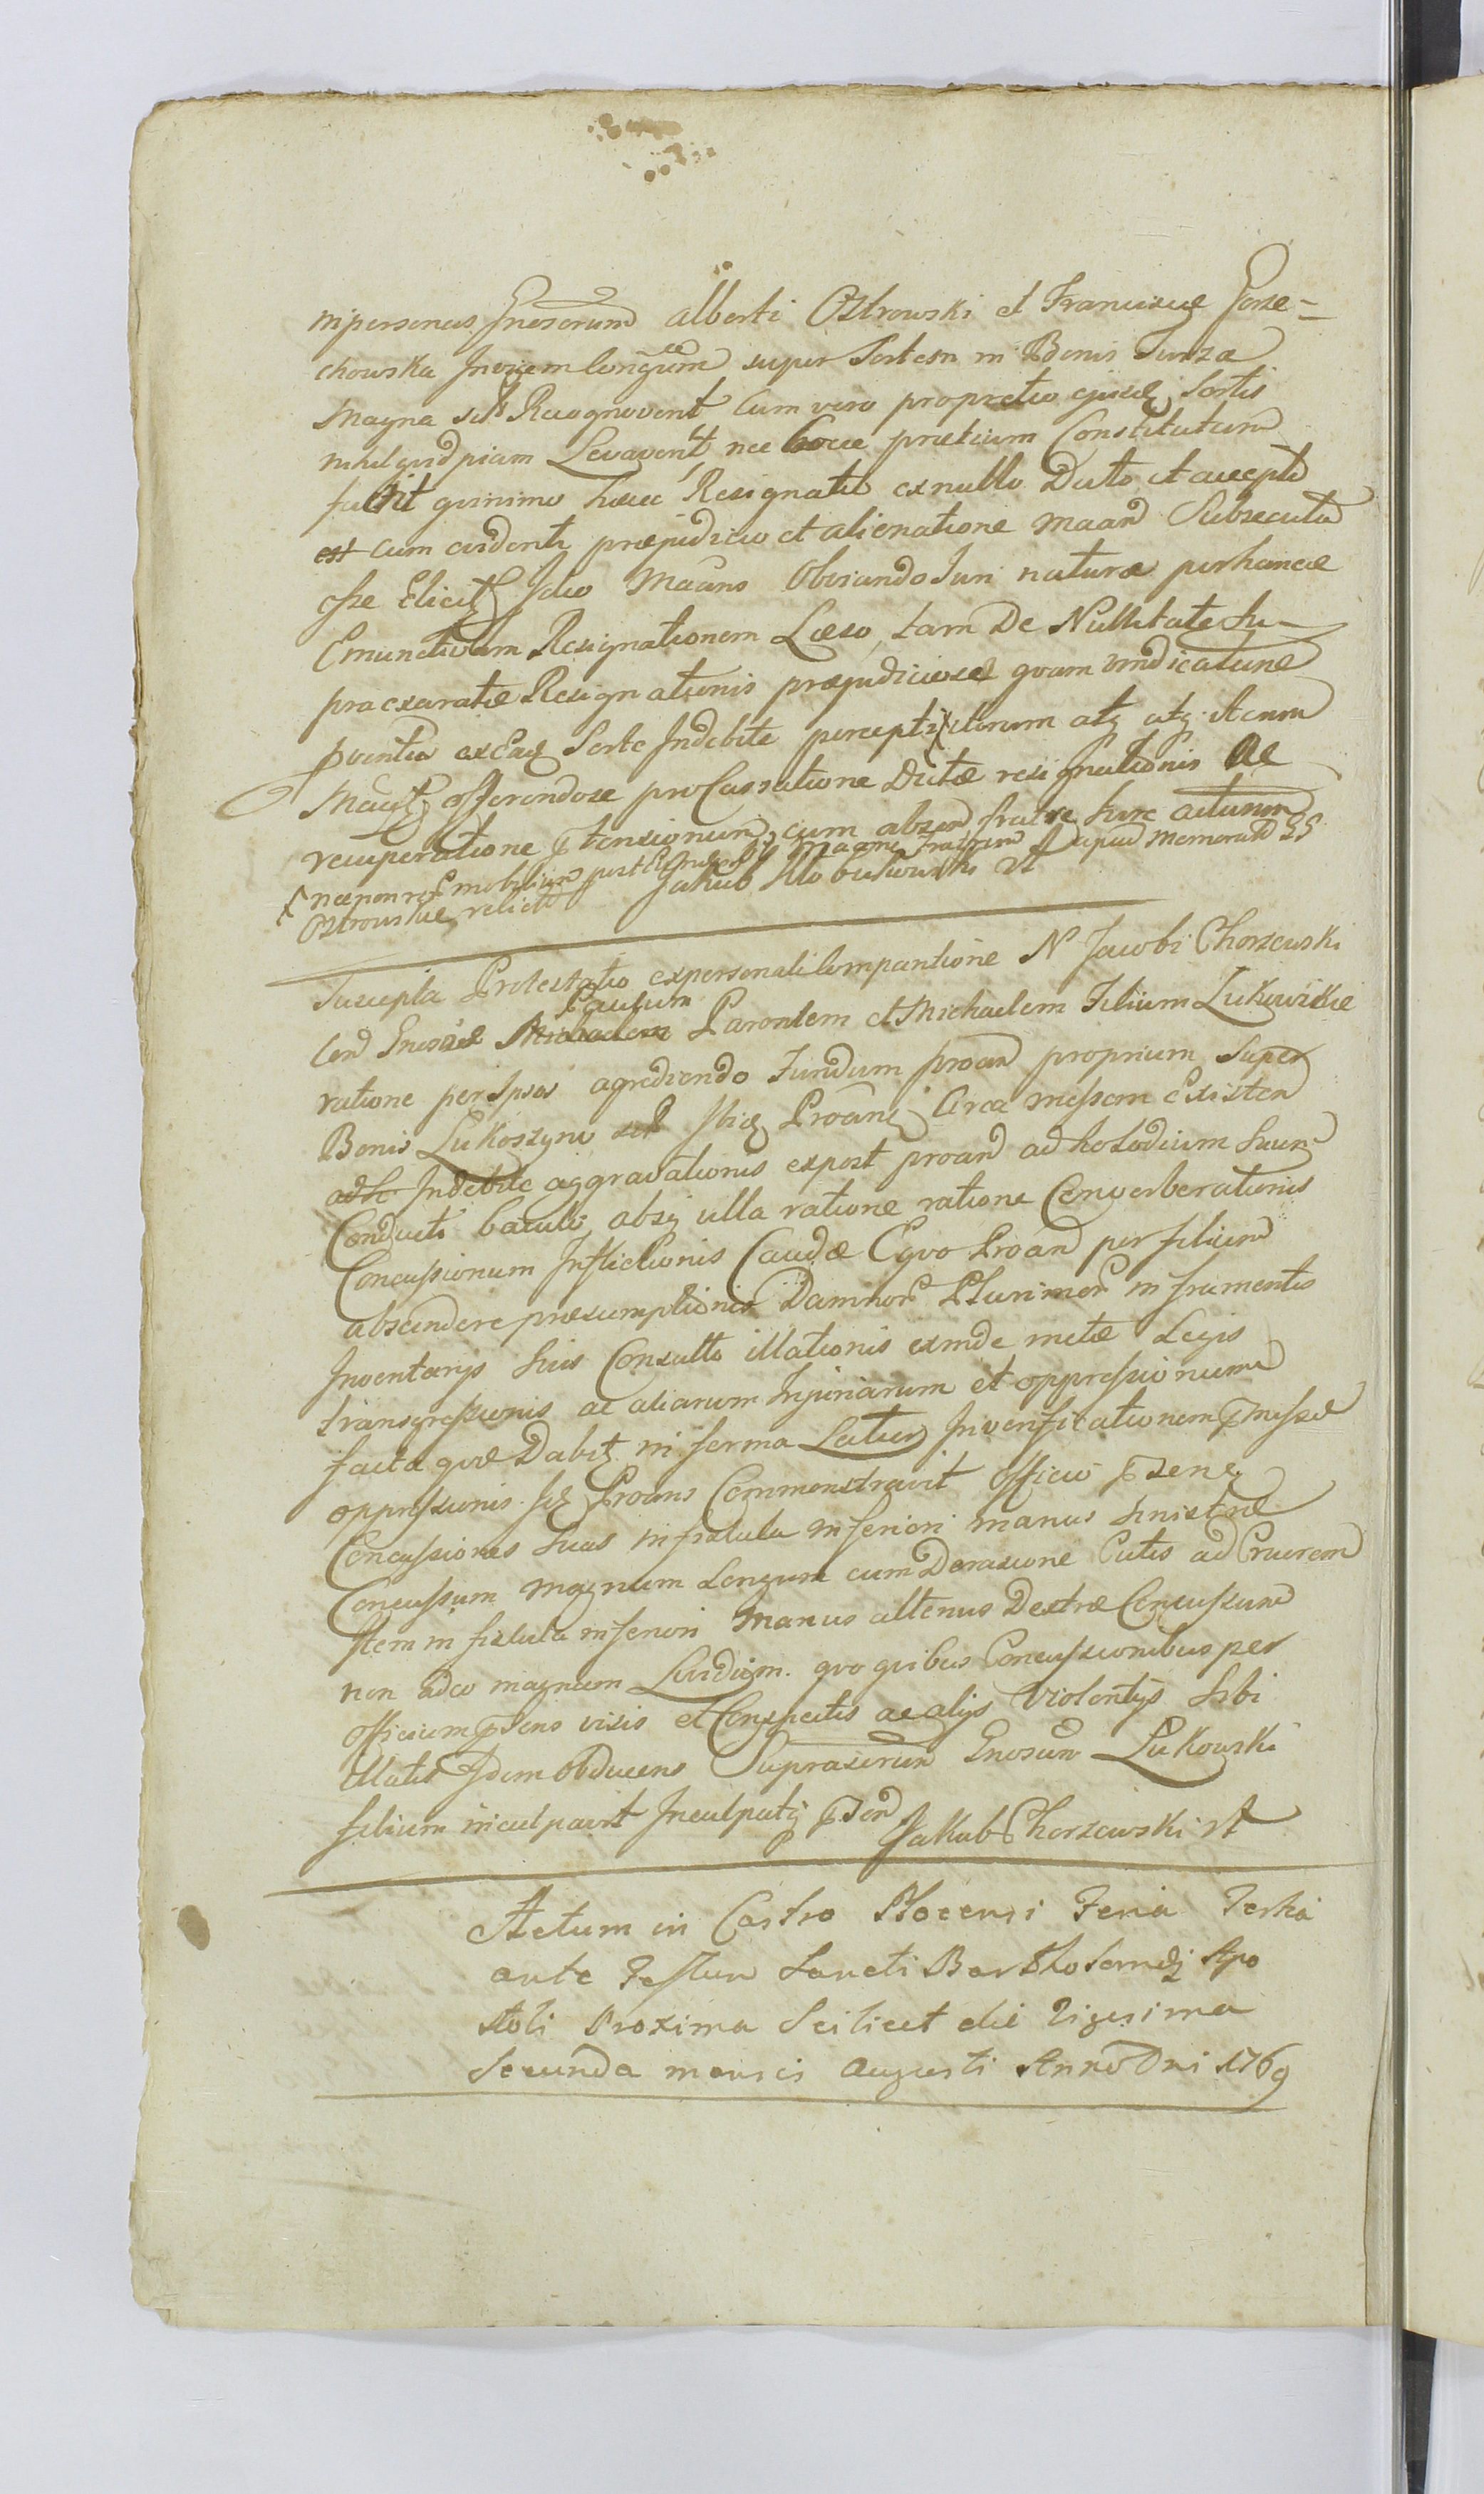 in personas Gnesorum Alberti Ostrowski et Franciscæ Gorze-
chowska Invicem Congum super Sortem in Bonis Turza
Magna sitis Recognoverit Cum vero pro pretio ejusq Sortis
nihil quid piam Levaverit nec hocce pretium Constitutum
fuerit quinimo hæcce Resignatio ex nullo Dato et accepto
cum evidenti præjudicio et alienatione Maan Subsecuta
esse Elicitq Ideo Maans Obviando Juri naturæ per hancce
Emunctivam Resignationem Læso, tam De Nullitate Su-
pra exaratæ Resignationis præjudiciosæ quam vindicatione
pventuu ex Eaq Sorte Indebite percepti itorum atq atq iterum
Manftq offerendose pro Cassatione Dictæ resignationis ac
recuperatione ptensionum, cum absen fratre hunc actum
necnon mobilium post Maanc Fratrum apud Memorat GG
Ostrowskie relict Jakub Kłobukowski mp
Suscepta Protestatio ex personali Compantione N Jacobi Chorzewski
Con Gnesos Paulum Parentem et Michaelem Filium Łukowskie
ratione per Ipsos agrediendo Fundum proan proprium super
Bonis Lukoszyno sit Ibiq Proanq Circa messem Existen
Indebite aggravationis ex post proan ad hospodium Suum
Conducti baculi absq ulla ratione ratione Converberationis
Concussionum Inflictionis Caudæ Equo Proan per filium
abscindere præsumptionis Damnor Plurimor in frumentis
Inventarijs suis Consulto illationis exinde metæ Legis
transgressionis ac aliarum Injuriarum et oppressionum
facta quæ Dabitq in forma Latius In verificationem pmissæ
oppressionis Itq Proans Commonstravit Officio psenq
Concussiones Suas in fistula inferiori manus sinistræ
Concussum magnum Longum cum Derasione Cutis ad Cruorem
Item in fistula inferiori Manus alterius Dextræ Concussum
non adeo magnum Lividum. quo quibus Concussionibus per
officium psens visis et Conspectis ac alijs Violentijs Sibi
illatis Idem obducens Suprascrium Gnosum Lukowski
filium inculpavit Inculpatq psen Jakub Chorzewski mp
Actum in Castro Plocensi Feria Tertia
ante Festum Sancti Bartholomæj Apo
stoli Proxima Scilicet die Vigesima
Secunda mensis Augusti Anno Dni 1769